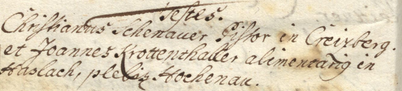 Testis.
Christianus Schenauer Pistor in Creizberg.
et Joannes Krottenthaller alimentarig in
Haslach, plebis Hochenau.